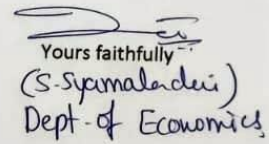 Yours faithfully
(S. Syamaladevi)
Dept. of Economics